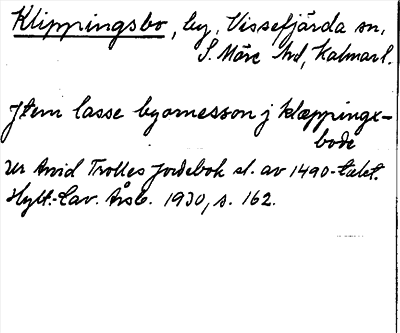 Klippingsbo, by, Vissefjärda sn,
S. Möre hd, Kalmarl.
Jtem lasse byornesson j klæppingx-
bode
Ur Arvid Trolles jordebok sl. av 1490-talet.
Hylt.-Cav. Årsb. 1930, s. 162.